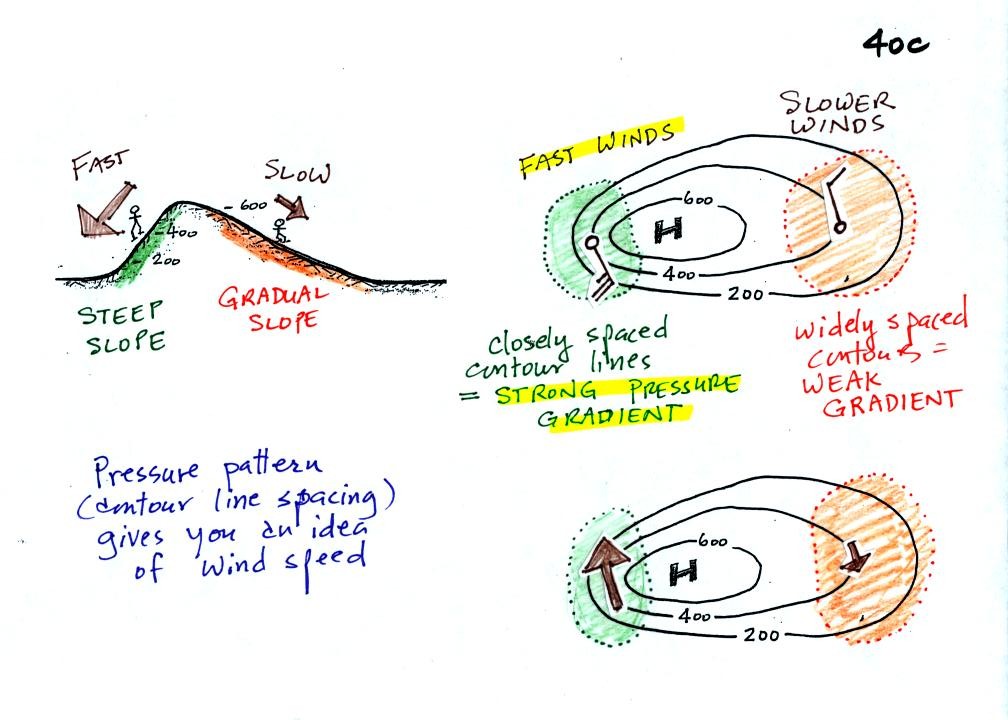 40c
FAST
SLOW
600
400
200
STEEP
SLOPE
GRADUAL
SLOPE
FAST WINDS
SLOWER
WINDS
600
H
400
200
closely spaced
contour lines
= STRONG PRESSURE
GRADIENT
widely spaced
contours =
WEAK
GRADIENT
Pressure pattern
(contour line spacing)
gives you an idea
of wind speed
600
H
400
200